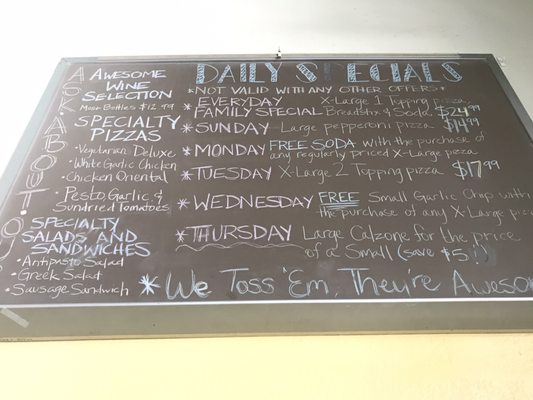 ASK ABOUT!
AWESOME
WINE
SELECTION
Most Bottles $12.99
SPECIALTY
PIZZAS
• Vegetarian Deluxe
• White Garlic Chicken
• Chicken Oriental
• Pesto, Garlic &
Sundried Tomatoes
SPECIALTY
SALADS AND
SANDWICHES
• Antipasto Salad
• Greek Salad
• Sausage Sandwich
DAILY SPECIALS
*NOT VALID WITH ANY OTHER OFFERS*
* EVERYDAY X-Large 1 Topping pizza
FAMILY SPECIAL Breadstix & Soda $24.99
* SUNDAY Large pepperoni pizza $14.99
* MONDAY FREE SODA with the purchase of
any regularly priced X-Large pizza
* TUESDAY X-Large 2 Topping pizza $17.99
* WEDNESDAY FREE Small Garlic Chop with
the purchase of any X-Large pizz
* THURSDAY Large Calzone for the price
of a Small (save $5.)
* We Toss 'Em, They're Aweso